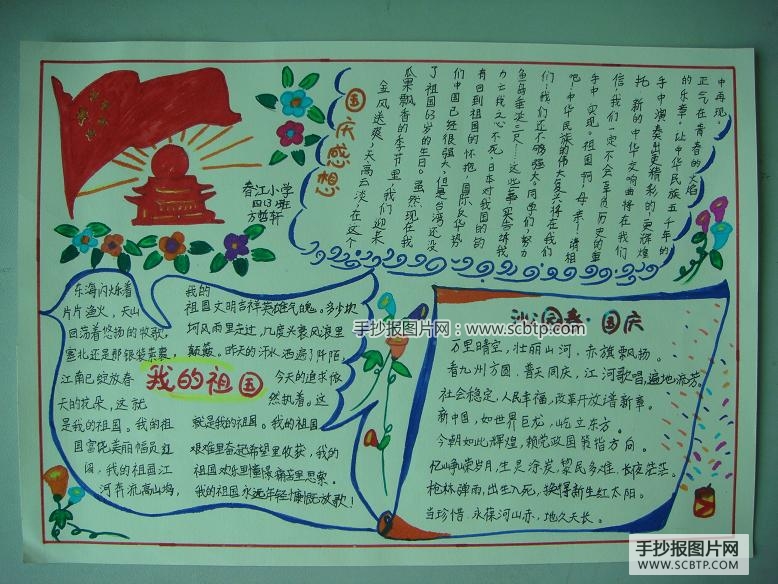 国庆感想
春江小学
四(3)班
方哲轩
金风送爽，天高云淡，在这个
瓜果飘香的季节里，我们迎来
了祖国63岁的生日。虽然现在我
们中国已经很强大，但是台湾还没
有回到祖国的怀抱，国际反华势
力亡我之心不死，日本对我国的钓
鱼岛垂涎三尺……这些事实告诉我
们：我们还不够强大。同学们，努力
吧！中华民族的伟大复兴将在我们
手中实现。祖国啊！母亲！请相
信，我们一定不会辜负历史的重
托，新的中华交响曲将在我们
手中演奏出更精彩的，更辉煌
的乐章，让中华民族五千年的
正气在青春的火焰
中再现。
东海闪烁着
片片渔火，天山
回荡着悠扬的牧歌，
塞北还是那银装素裹，
江南已绽放春
天的花朵，这就
是我的祖国。我的祖
国富饶美丽幅员辽
阔，我的祖国江
河奔流高山巍，
我的祖国
我的
祖国文明吉祥英雄气魄。多少坎
坷风雨里走过，几度兴衰风浪里
颠簸。昨天的汗水洒遍了阡陌，
今天的追求依
然执着。这
就是我的祖国。我的祖国
艰难里奋起希望里收获，我的
祖国欢乐里憧憬痛苦里思索。
我的祖国永远年轻慷慨放歌！
沁园春·国庆
万里晴空，壮丽山河，赤旗飘扬。
看九州方圆，普天同庆，江河歌唱，遍地流芳。
社会稳定，人民幸福，改革开放谱新章。
新中国，如世界巨龙，屹立东方。
今朝如此辉煌，赖党政国策指方向。
忆峥嵘岁月，生灵涂炭，黎民多难，长夜茫茫。
枪林弹雨，出生入死，换得新生红太阳。
当珍惜，永葆河山赤，地久天长。
手抄报图片网：www.scbtp.com
手抄报图片网
WWW.SCBTP.COM